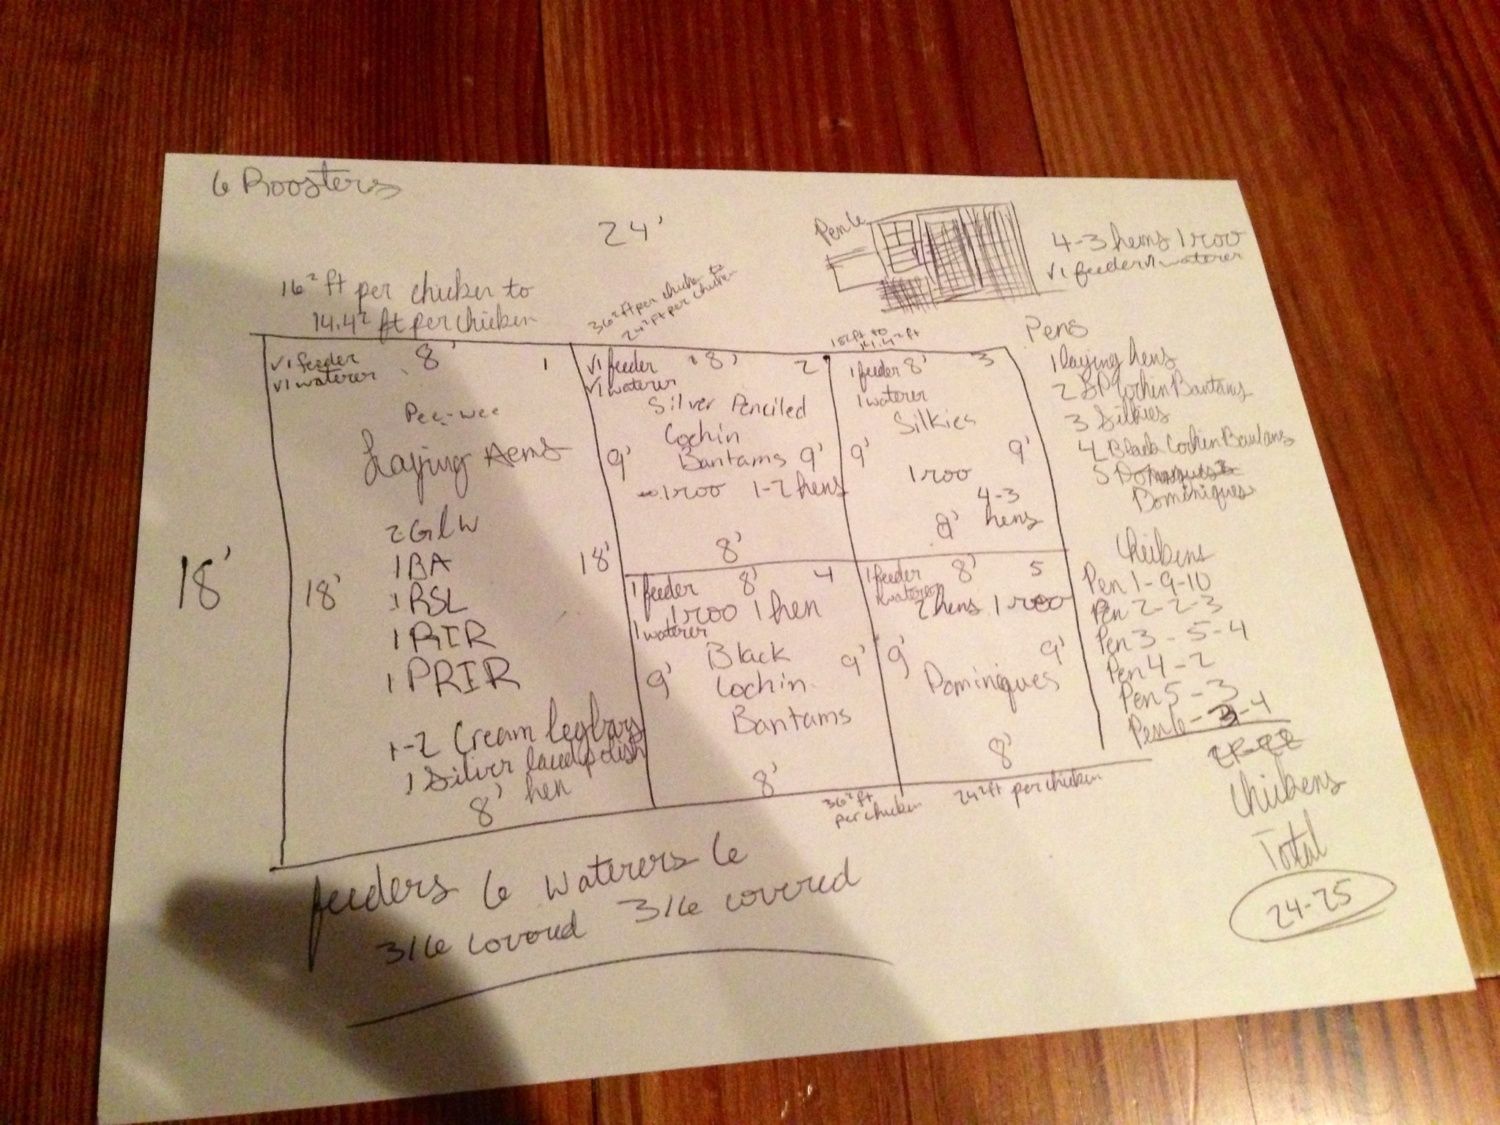 6 Roosters
24'
Pen 6
4-3 hens 1 roo
√1 feeder √1 waterer
16² ft per chicken to
14.4² ft per chicken
36² ft per chicken to
24² ft per chicken
14.4² ft
√1 feeder 8' 1
√1 waterer
Pee-wee
Laying Hens
18'
18'
18'
2 GLW
1 BA
1 RSL
1 RIR
1 PRIR
1-2 Cream legbars
1 Silver laced polish
hen
8'
√1 feeder 8' 2
√1 waterer
Silver Penciled
Cochin
9' Bantams 9'
1 roo 1-2 hens
8'
1 feeder 8' 3
1 waterer
Silkies
9' 9'
1 roo
4-3
8' hens
1 feeder 8' 4
1 roo 1 hen
1 waterer
Black
9' Cochin 9'
Bantams
8'
1 feeder 8' 5
1 waterer 2 hens 1 roo
9' 9'
Dominiques
8'
36² ft
per chicken
24² ft per chicken
Pens
1 laying hens
2 SP Cochin Bantams
3 Silkies
4 Black Cochin Bantams
5
Dominiques
Chickens
Pen 1-9-10
Pen 2-2-3
Pen 3-5-4
Pen 4-2
Pen 5-3
Pen 6-4
Chickens
Total
24-25
feeders 6 waterers 6
3/6 covered 3/6 covered